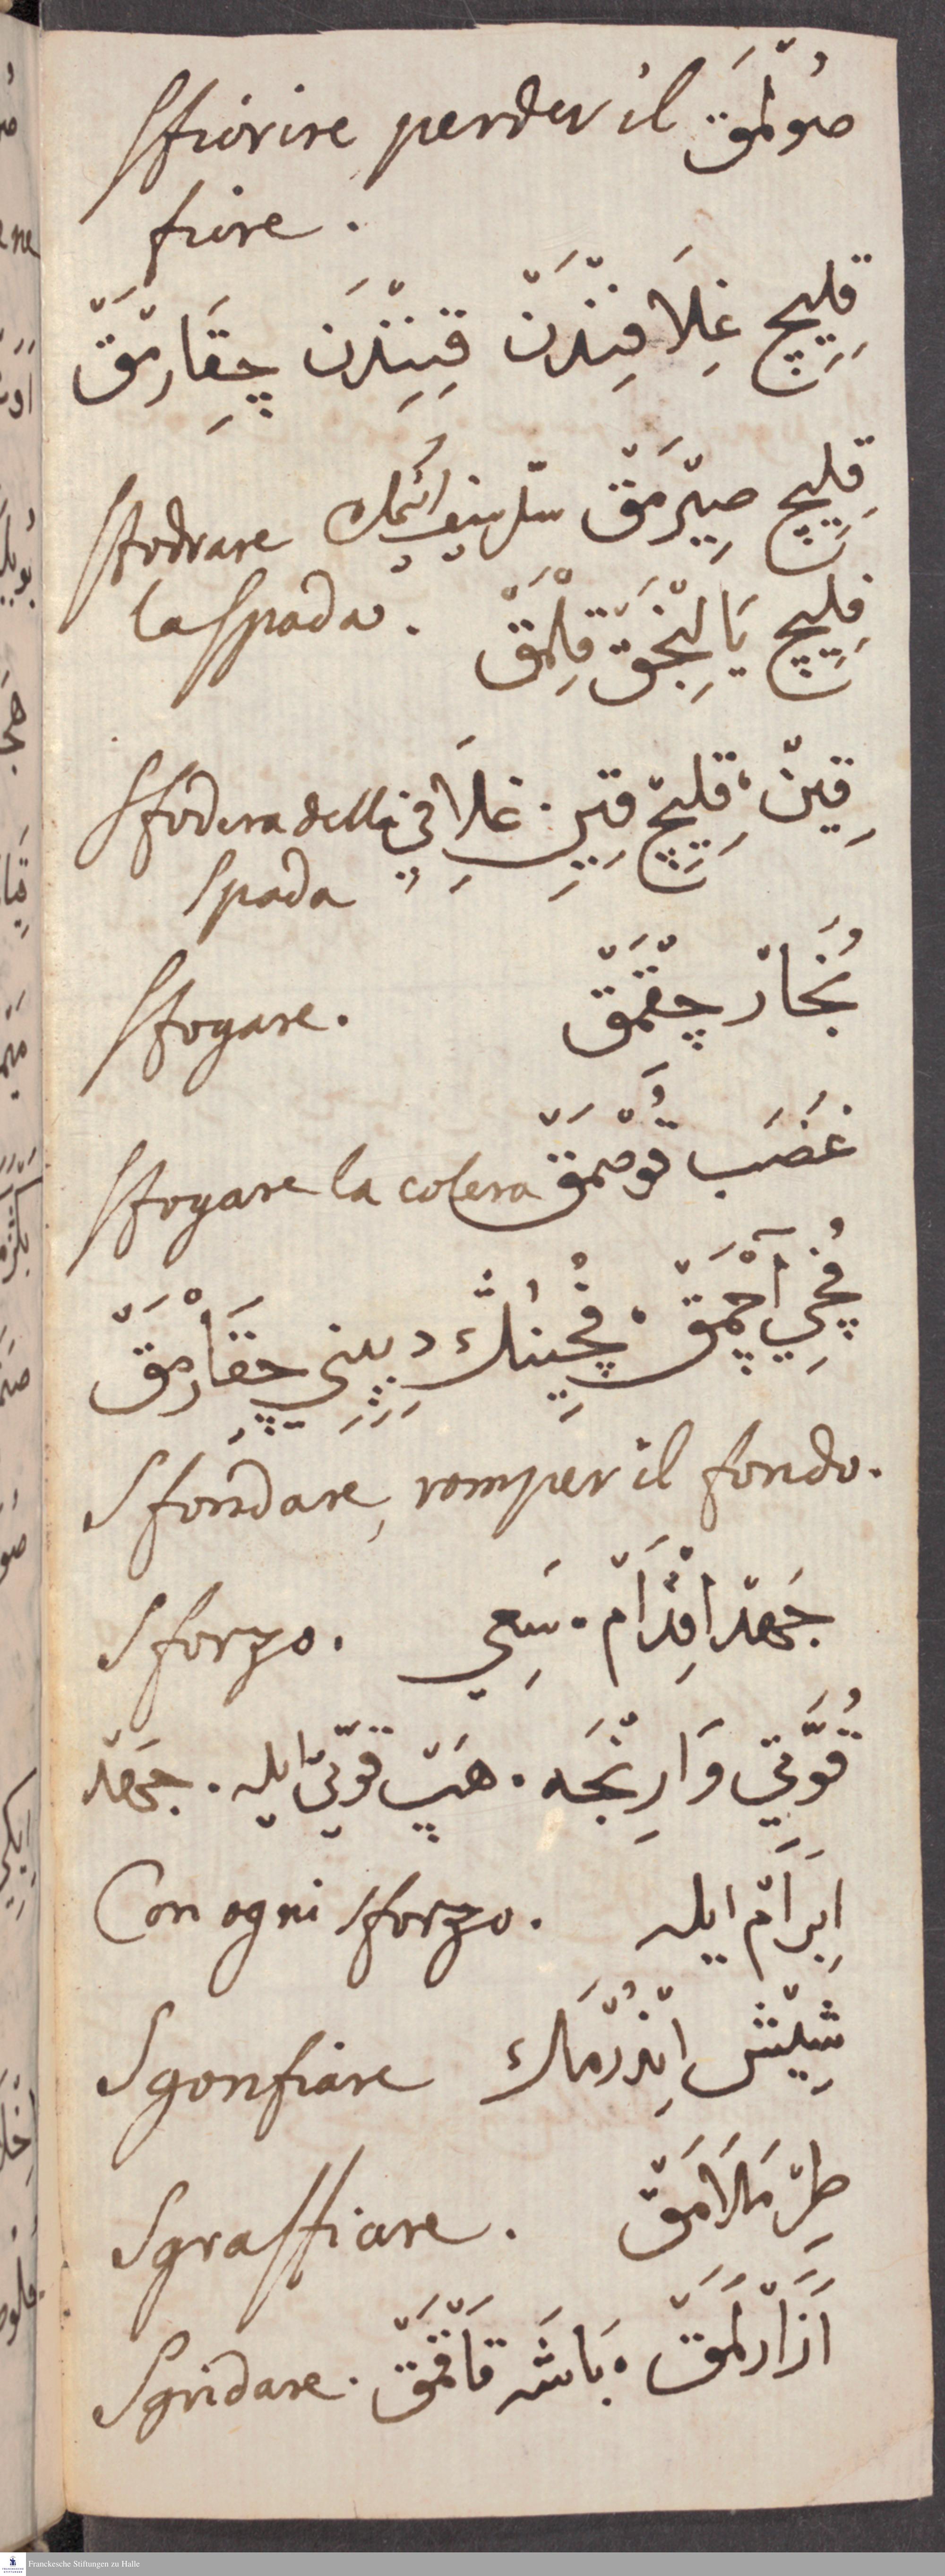 Sfiorire perder il صُولْمَقْ
fiore.
قِلِيچ غِلَافِنْدَنْ قِينِنْدَن چِقَارْمَقْ
قِلِيچ صِيْرمَقْ
Sfodrare
la Spada. قِلِيچ يَالِنْجَقْ قِلْمَقْ
Sfodera della قِينْ، قِلِيچْ قِينِي. غِلَافِي
Spada
Sfogare. بُخَارْ چِقْمَقْ
Sfogare la colera غَضَب قُوصْمَقْ
فُچِي آچْمَقْ، فُچِينُكْ دِيبِنِي چِقَارْمَقْ
Sfondare, romper il fondo.
Sforzo. جَهْد اِقْدَامْ. سَعِي
قُوَّتِي وَارِنْجَه. هَپْ قوّتى ايله. جَهْد
Con ogni sforzo. اِبرَامْ ايله
Sgonfiare شِيْش اِنْدُرْمَك
Sgraffiare. طِرْمَالَامَقْ
Sgridare. اَزَارْلَمَقْ، بَاشَه قَاقْمَقْ
Franckesche Stiftungen zu Halle